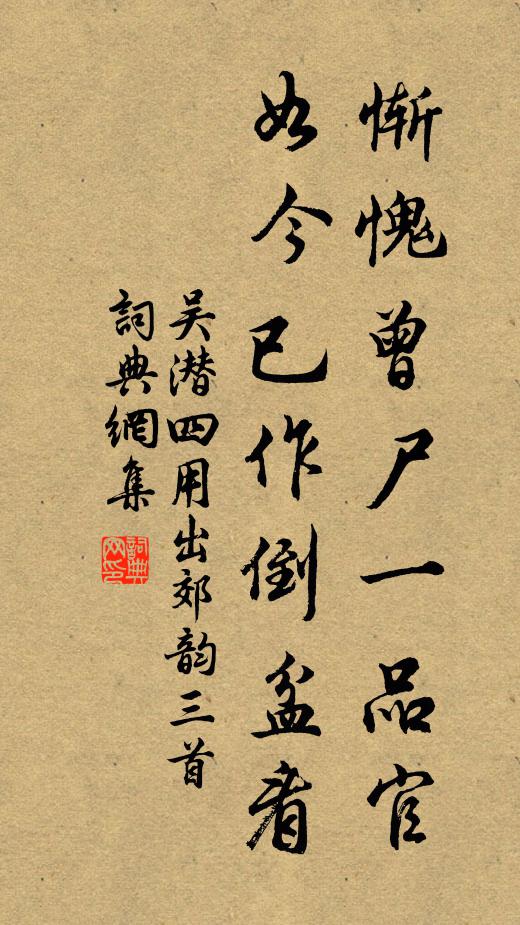 慚愧曾尸一品官
如今已作倒盆看
吴潜四用出郊韵三首
詞典網集
詞典网印